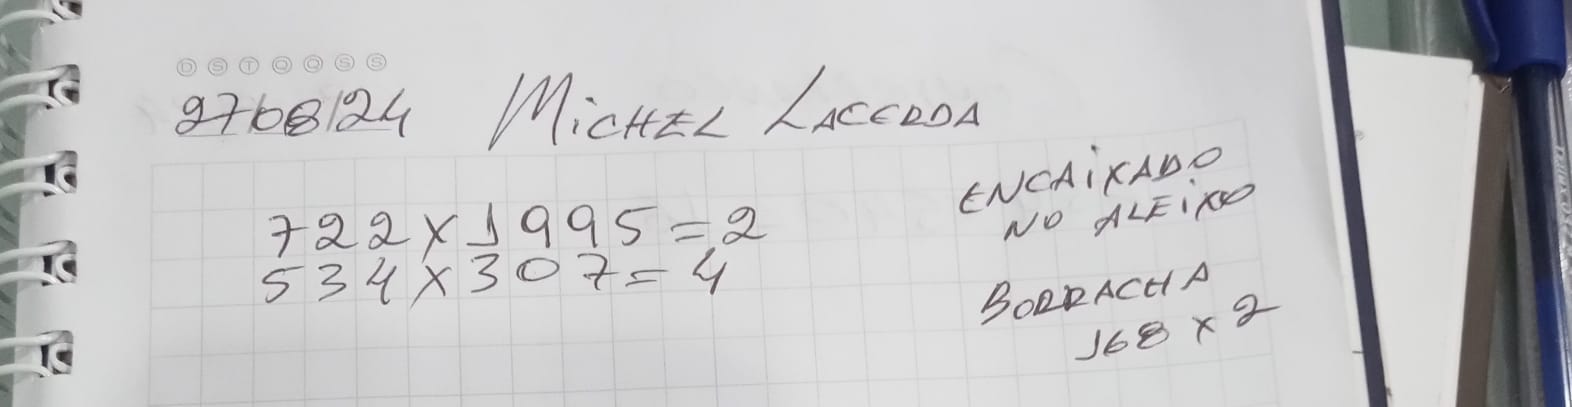 D S T Q Q S S
27/08/24 MiCHEL LACERDA
722 x 1995 = 2
534 x 307 = 4
ENCAiXADO
NO ALEiXO
BORRACHA
168 x 2